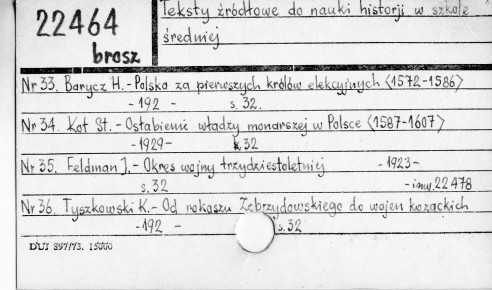 22464
brosz
Teksty źródłowe do nauki historji w szkole
średniej
Nr 33. Barycz H. - Polska za pierwszych królów elekcyjnych (1572-1586)
- 192 - s. 32.
Nr 34. Kot St. - Osłabienie władzy monarszej w Polsce (1587-1607)
- 1929 - s. 32
Nr 35. Feldman J. - Okres wojny trzydziestoletniej - 1923 -
s. 32 - inw. 22478
Nr 36. Tyszkowski K. - Od rokoszu Zebrzydowskiego do wojen kozackich
- 192 - s. 32
DUJ 897/73. 15000